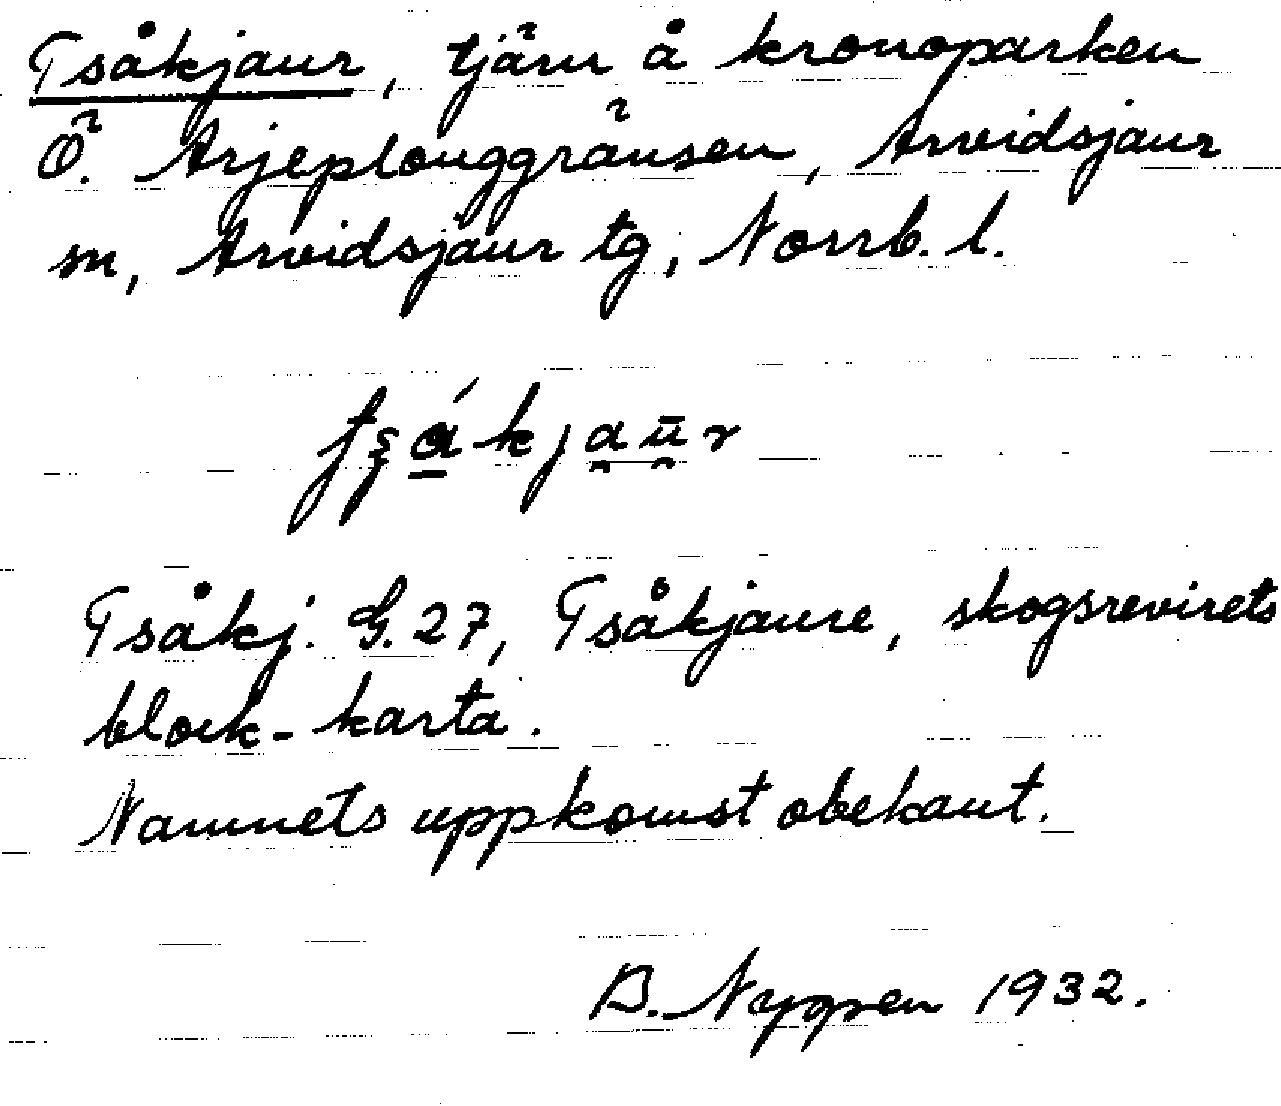 Tsåkjaur, tjärn å kronoparken
Ö. Arjeplouggränsen, Arvidsjaur
sn, Arvidsjaur tg, Norrb. l.
Tsåkj. G. 27, Tsåkjaure, skogsrevirets
block-karta.
Namnets uppkomst obekant.
B. Nyppen 1932.